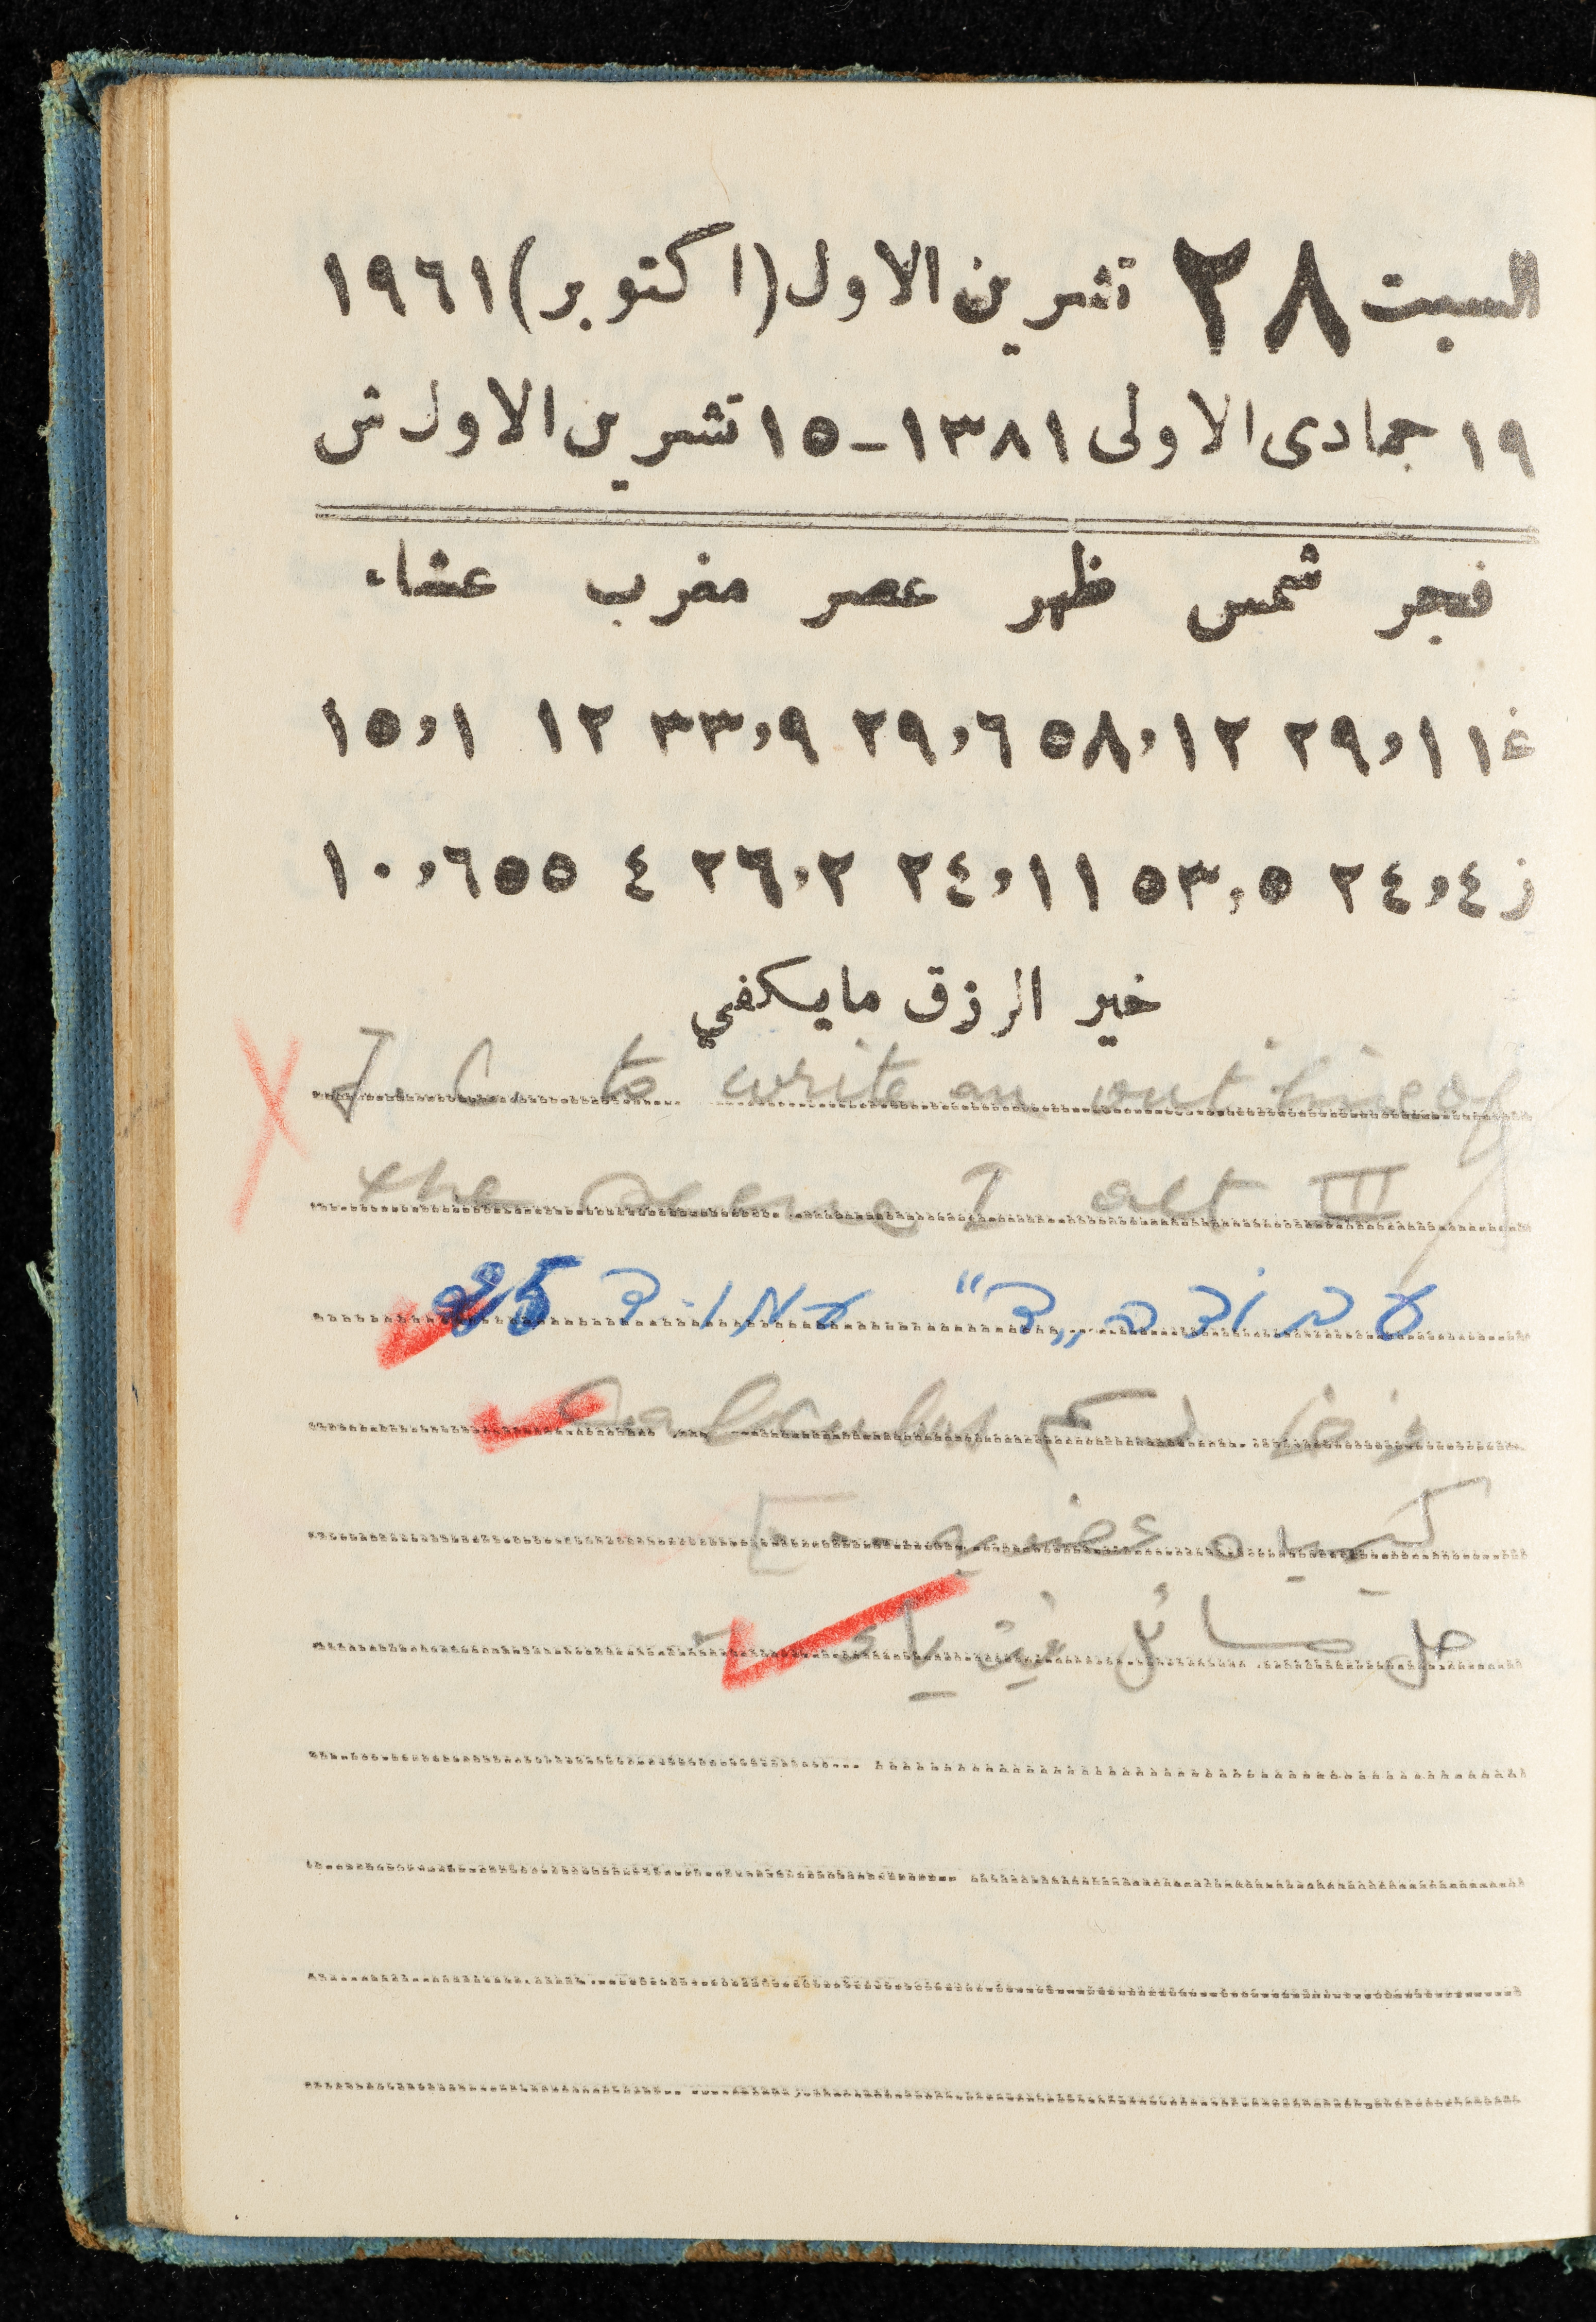 السبت ٢٨ تشرين الاول (اكتوبر) ١٩٦١
١٩ جمادى الاولى ١٣٨١ - ١٥ تشرين الاول ش
فجر شمس ظهر عصر مغرب عشاء
غ ٢٩،١١ ٥٨،١٢ ٢٩،٦ ٣٣،٩ ١٢ ١٥،١
ز ٢٤،٤ ٥٣،٥ ٢٤،١١ ٢٦،٢ ٤ ٥٥ ١٠،٦
خير الرزق مايكفي
J. C. to write an outline of
the scene I act III
עבודה „ד“ עמוד 25
Calculus
كيمياء عضويه
حل مسائل فيزياء